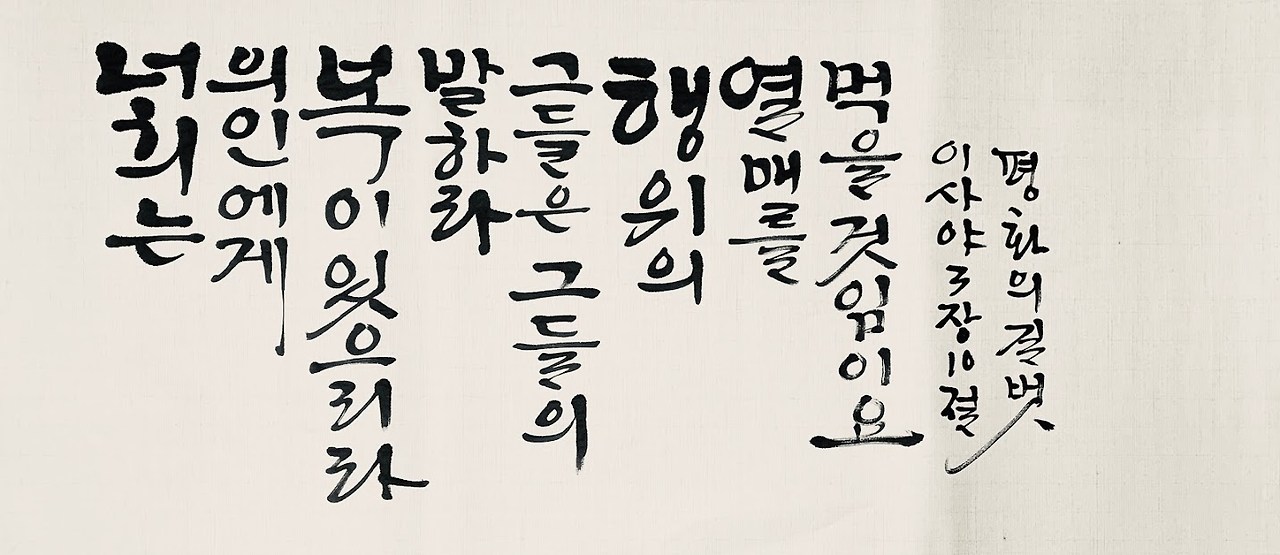 너희는
의인에게
복이 있으리라
말하라
그들은 그들의
행위의
열매를
먹을 것임이요
이사야 3장 10절
평화의 길벗